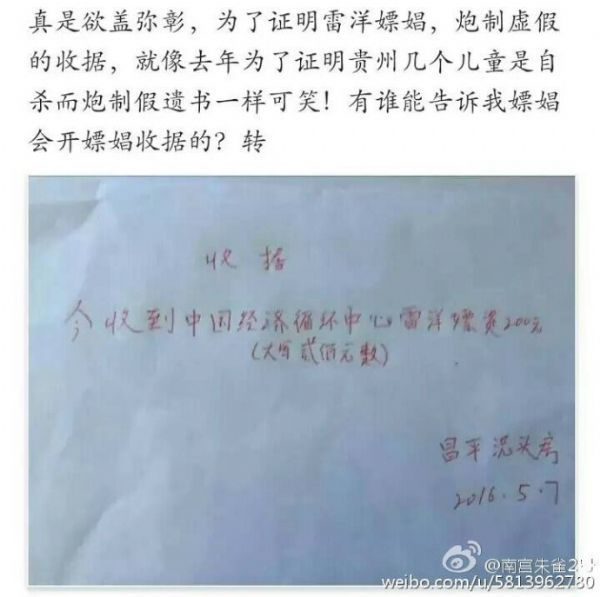 真是欲盖弥彰，为了证明雷洋嫖娼，炮制虚假
的收据，就像去年为了证明贵州几个儿童是自
杀而炮制假遗书一样可笑！有谁能告诉我嫖娼
会开嫖娼收据的？转
收据
今收到中国经济循环中心雷洋嫖资200元
（大写贰佰元整）
昌平
2016.5.7
@南宫朱雀2号
weibo.com/u/5813962780